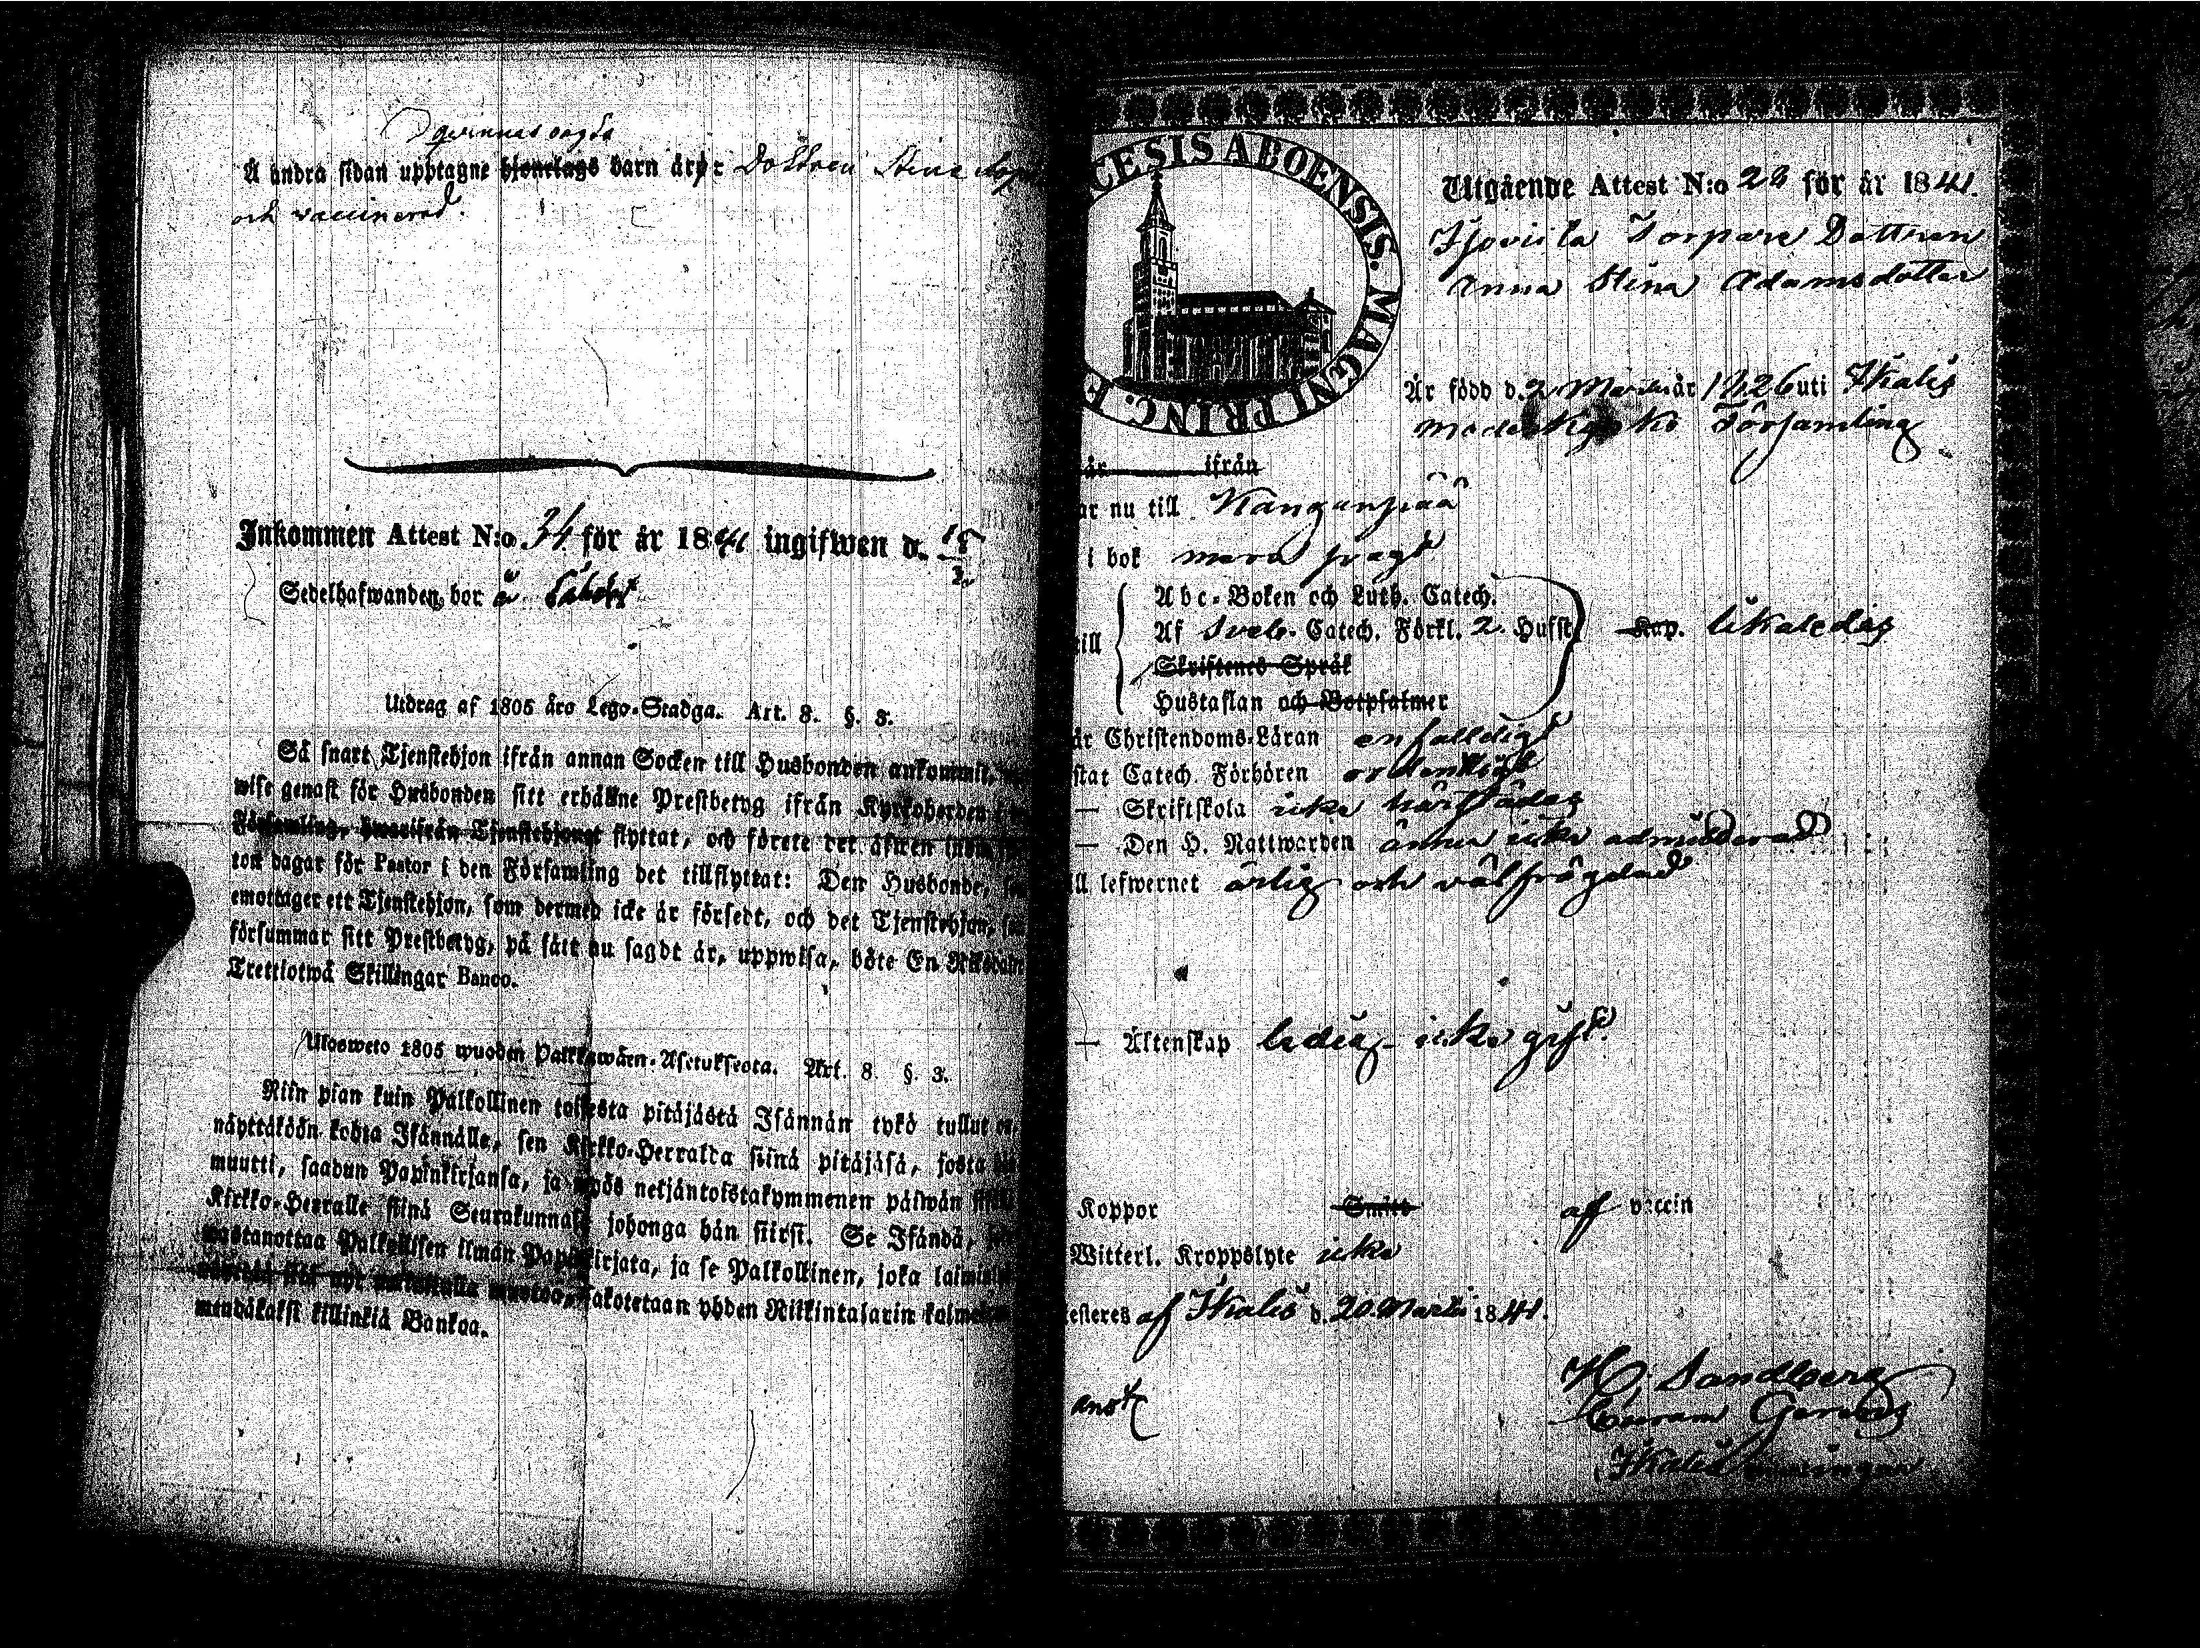 qvinnas oägta
Å andra sidan upptagne hjonelags barn äro: Dottren Stina
och vaccinerad.
Inkommen Attest N:o 34 för år 1841 ingifwen d.
Sedelhafwanden bor å
Utdrag af 1805 åro Lego-Stadga. Art. 8. §. 3.
Så snart Tjenstehjon ifrån annan Socken till Husbonden ankommit,
wise genast för Husbonden sitt erhållne Prestbetyg ifrån Kyrkoherden
Församling, hwarifrån Tjenstehjonet flyttat, och förete det äfwen inom
ton dagar för Pastor i den Församling det tillflyttat: Den Husbonde,
emottager ett Tjenstehjon, som dermed icke är försedt, och det Tjenstehjon,
försummar sitt Prestbetyg, på sätt nu sagdt är, uppwisa, böte En Riksdaler
Trettiotwå Skillingar Banco.
Ulosweto 1805 wuoden Palkkawäen-Asetuksesta. Art. 8. §. 3.
Niin pian kuin Palkollinen toisesta pitäjästä Isännän tykö tullut on,
näyttäköön kohta Isännälle, sen Kirkko-Herralda siinä pitäjäsä, josta
muutti, saadun Papinkirjansa, ja myös neljäntoistakymmenen päiwän
Kirkko-Herralle siinä Seurakunnasa johonga hän siirsi. Se Isändä,
wastanottaa Palkollisen ilman Papinkirjata, ja se Palkollinen, joka
sakotetaan yhden Riikintalarin
mendäkaksi killinkiä Bankoa.
CESIS ABOENSIS. MAGNI PRINC. F
Utgående Attest N:o 28 för år 1841.
Torpare Dottren
Anna Stina Adamsdotter
Är född d. 2 Martii år 1826 uti Ikalis
Moderkyrko Församling
år ifrån
ar nu till Kangunpää
i bok mera svagt
Abc-Boken och Luth. Catech.
till Af Sveb. Catech. Förkl. 2 Hufst. Kap. likaledes
Skriftenes Språk
Hustaflan och Botpsalmer
är Christendoms-Läran enfaldigt
stat Catech. Förhören ordentligt
— Skriftskola icke härstädes
— Den H. Nattwarden ännu icke admitterad
ill lefwernet ärlig och välfrägdad
— Äktenskap ledig - icke gift.
Koppor Smitt af vaccin
Witterl. Kroppslyte icke
testeres af Ikalis d. 20 Martii 1841.
H. Sandberg